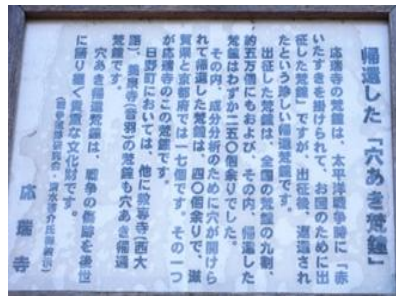 帰還した「穴あき梵鐘」
応瑞寺の梵鐘は、太平洋戦争時に「赤
いたすきを掛けられて、お国のために出
征した梵鐘」ですが、出征後、返還され
たという珍しい帰還梵鐘です。
出征した梵鐘は、全国の梵鐘の九割、
約五万個にもおよび、その内、帰還した
梵鐘はわずか二五〇個余りでした。
その内、成分分析のために穴が開けら
れて帰還した梵鐘は、四〇個余りで、滋
賀県と京都府では一七個です。その一つ
が応瑞寺のこの梵鐘です。
日野町においては、他に教専寺(西大
路)、義泉寺(音羽)の梵鐘も穴あき帰還
梵鐘です。
穴あき帰還梵鐘は、戦争の傷跡を後世
に語り継ぐ貴重な文化財です。
応瑞寺